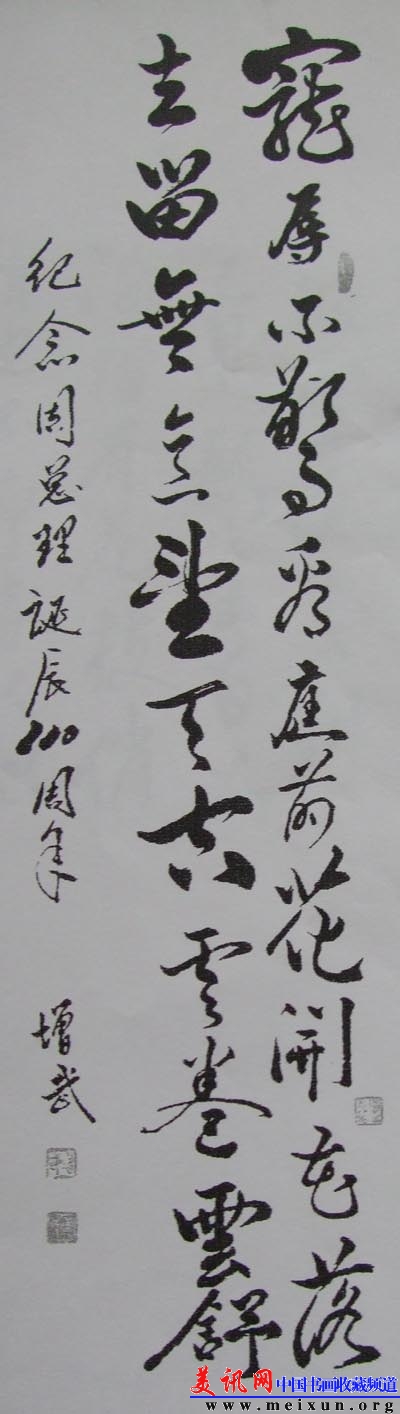 寵辱不驚看前花開花落
去留無意望天空雲卷雲舒
紀念周总理誕辰110周年
增武
美讯网 中国书画收藏频道
www.meixun.org